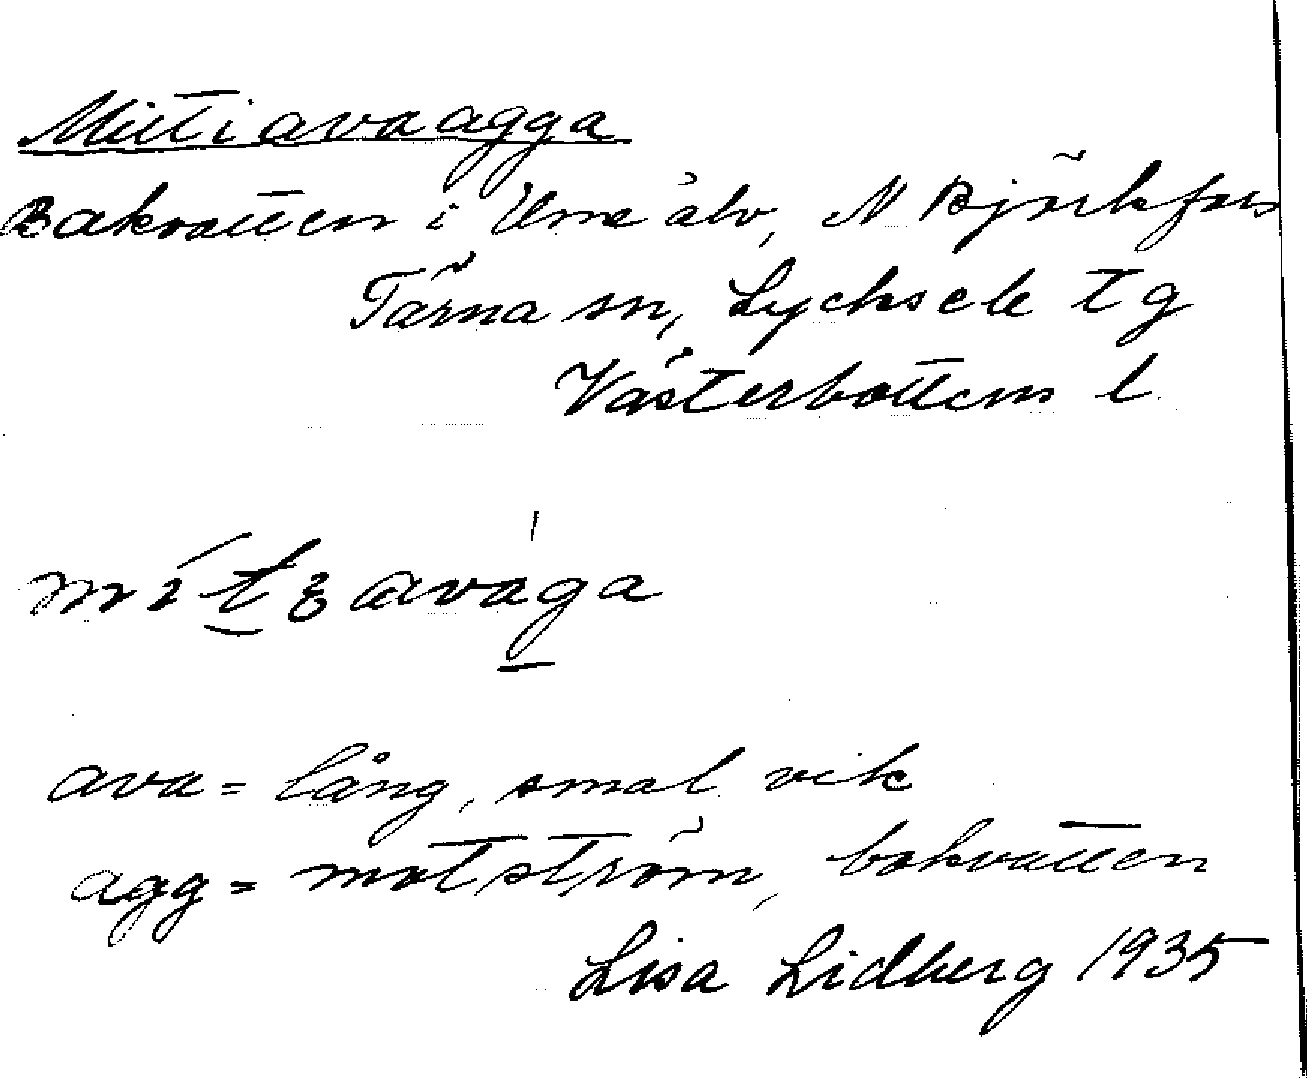 Miitiavaagga
Bakvatten i Ume älv, N Björkfors
Tärna sn, Lycksele tg
Västerbottens l
ava = lång, smal vik
agg = motström, bakvatten
Lisa Lidberg 1935